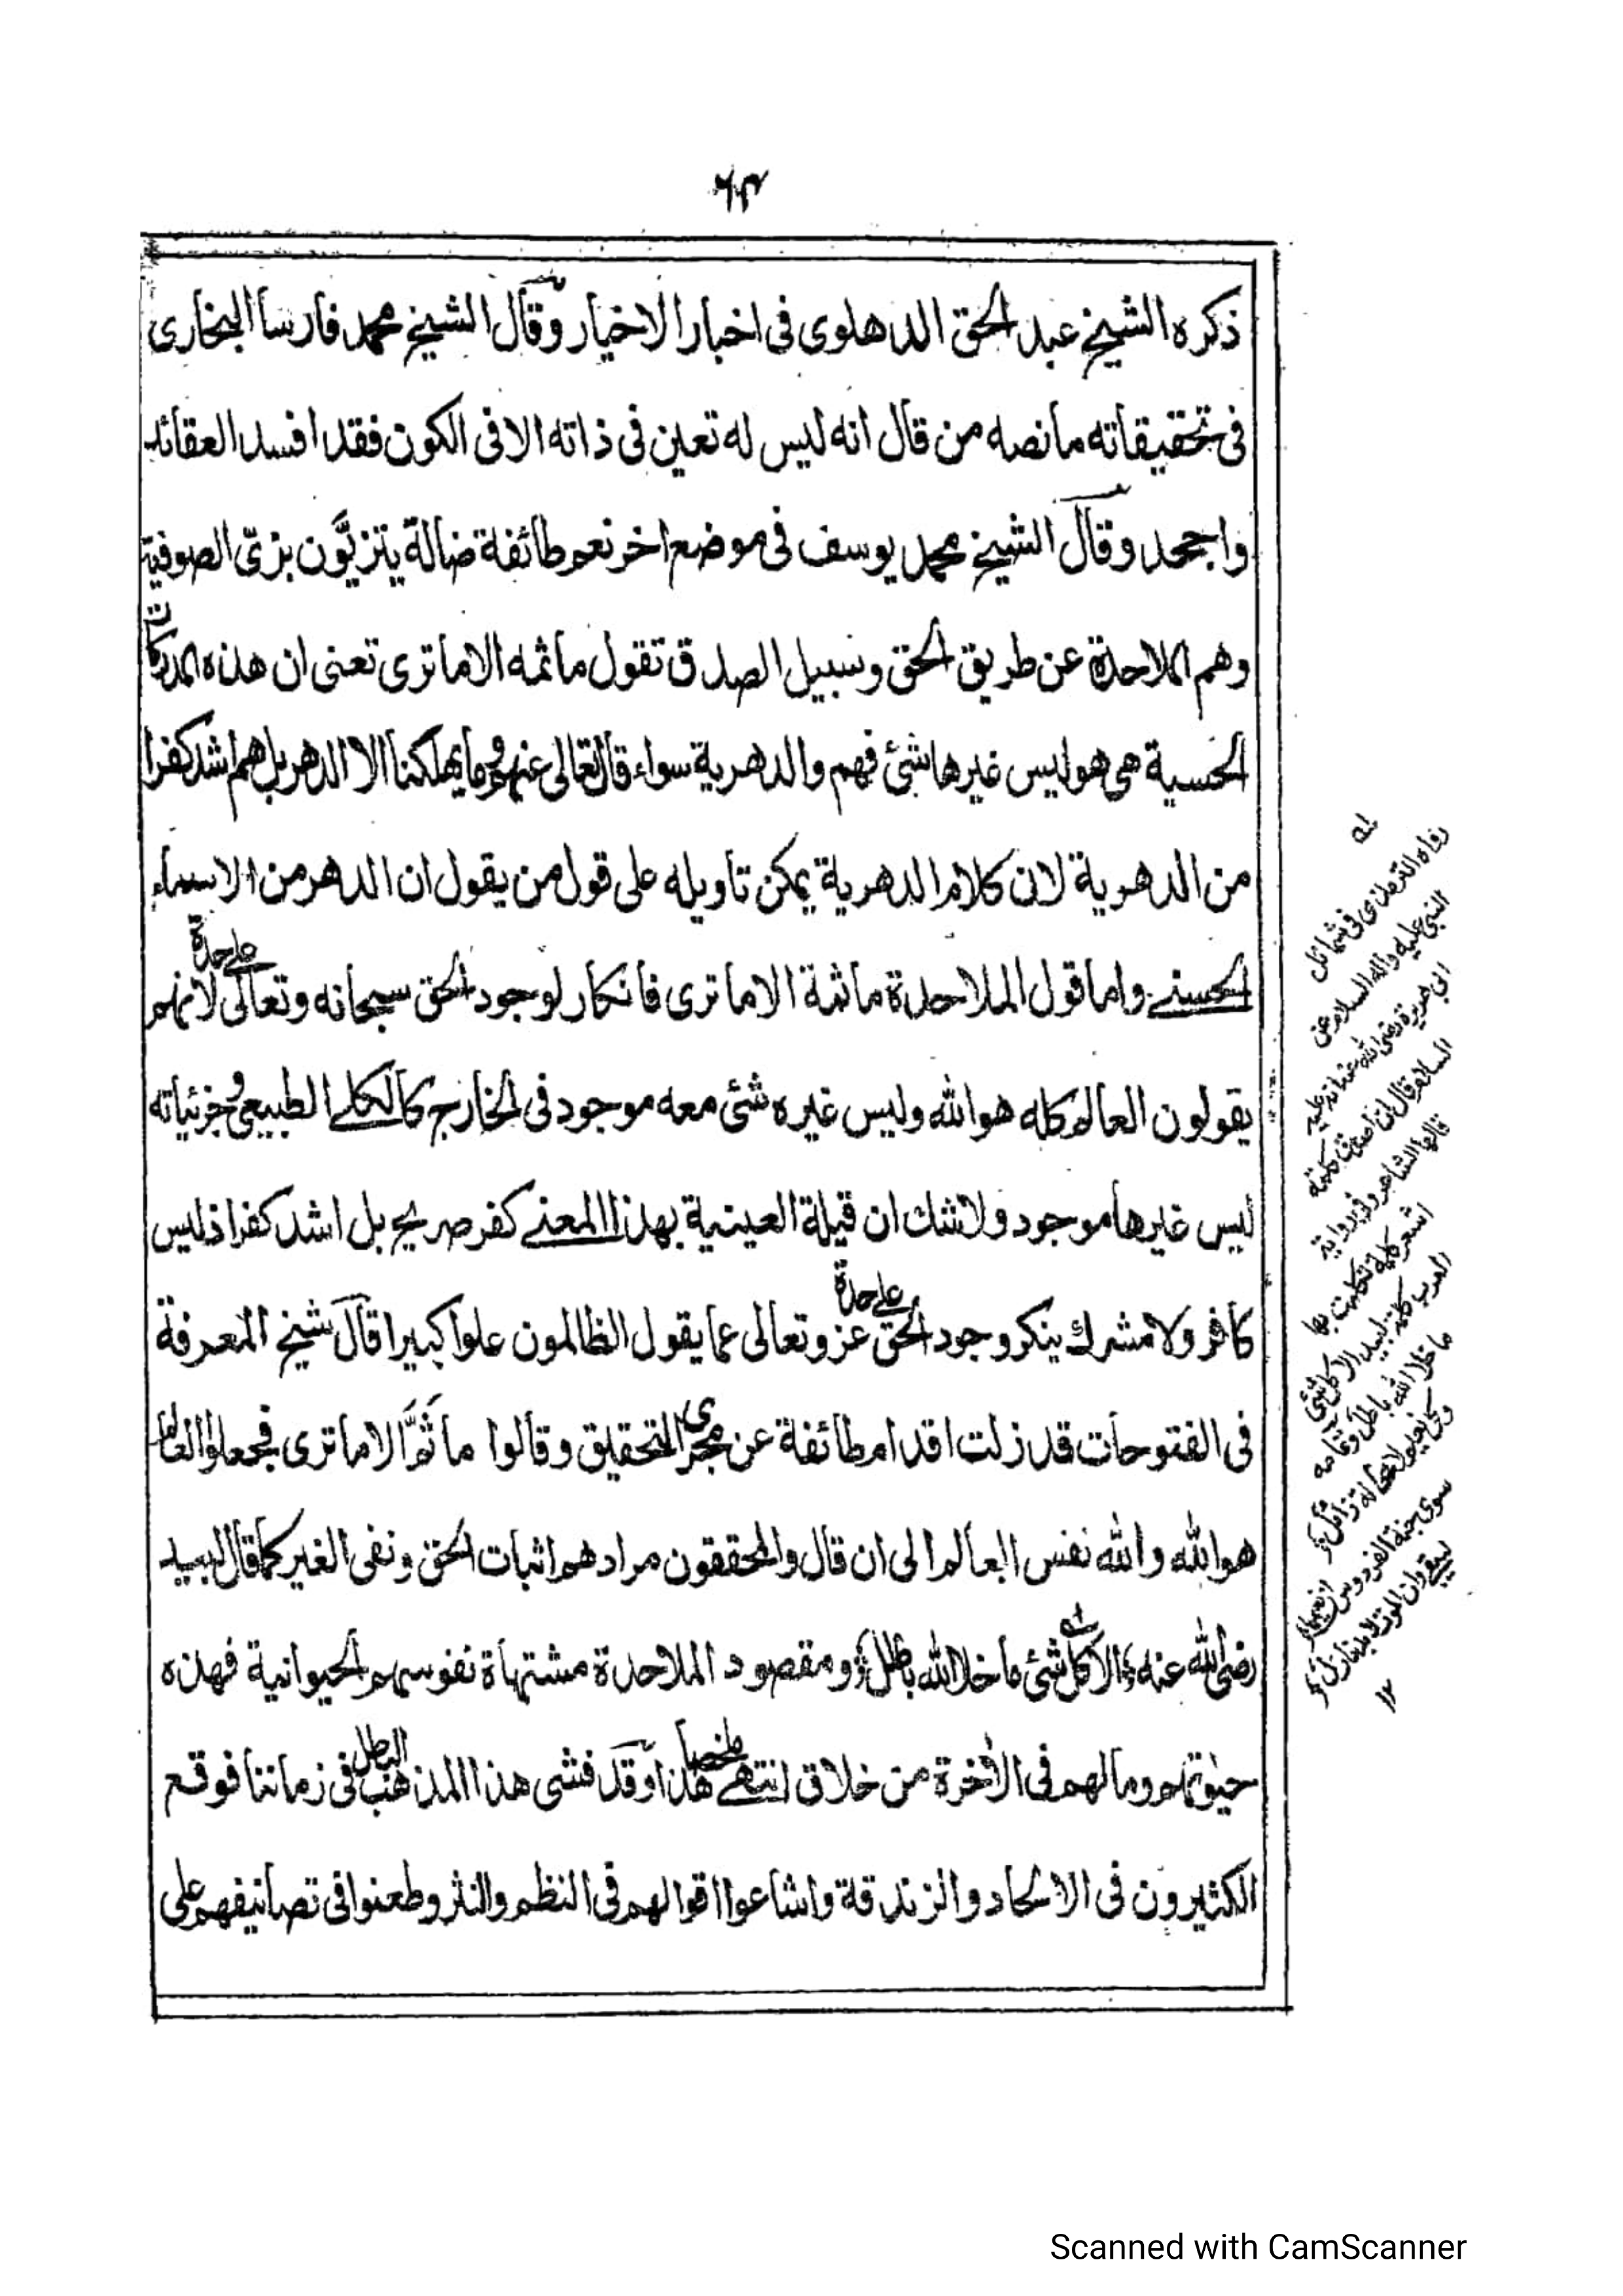 ٦٣
ذكره الشيخ عبد الحق الدهلوى فى اخبار الاخيار وقال الشيخ محمد فارسا البخارى
فى تحقيقاته ما نصه من قال انه ليس له تعين فى ذاته الا فى الكون فقد افسد العقائد
واجحد وقال الشيخ محمد يوسف فى موضع اخر نعم طائفة ضالة يتزيّون بزىّ الصوفية
وهم الملاحدة عن طريق الحق وسبيل الصدق تقول ما ثمه الا ما ترى تعنى ان هذه المدركات
الحسية هى هو ليس غيرها شئ فهم والدهرية سواء قال تعالى عنهم وما يهلكنا الا الدهر بل هم اشد كفرا
من الدهرية لان كلام الدهرية يمكن تاويله على قول من يقول ان الدهر من الاسماء
الحسنے واما قول الملاحدة ما ثمة الا ما ترى فانكار لوجود الحق سبحانه وتعالى علےحدة لانهم
يقولون العالم كله هو الله وليس غيره شئ معه موجود فى الخارج كالكلے الطبيعى وجزئياته
ليس غيرها موجود ولا شك ان قيلة العينية بهذا المعنے كفر صريح بل اشد كفرا اذ ليس
كافر ولا مشرك ينكر وجود الحق علےحدة عز وتعالى عما يقول الظالمون علوا كبيرا قال شيخ المعرفة
فى الفتوحات قد زلت اقدام طائفة عن مجرى التحقيق وقالوا ما ثَمَّ الا ما ترى فجعلوا العالم
هو الله والله نفس العالم الى ان قال والمحققون مرادهم اثبات الحق ونفى الغير كما قال لبيد
رضى الله عنه ؏ الا كل شئ ما خلا الله باطل ؏ ومقصود الملاحدة مشتهاة نفوسهم الحيوانية فهذه
حيٰوتهم وما لهم فى الاٰخرة من خلاق انتهے ملخصا هذا وقد فشى هذا المذهب الباطل فى زماننا فوقع
الكثيرون فى الالحاد والزندقة واشاعوا اقوالهم فى النظم والنثر وطعنوا فى تصانيفهم على
له
رواه الترمذى فى شمائل
النبى عليه واله السلام عن
ابى هريرة رضى الله عنه انه عليه
السلام قال ان اصدق كلمة
قالها الشاعر وفى رواية
اشعر كلمة تكلمت بها
العرب كلمة لبيد الا كل شئ
ما خلا الله باطل وتمامه
وكل نعيم لا محالة زائل
سوى جنة الفردوس ان نعيمها
يبقے وان الموت لا بد نازل
١٢
Scanned with CamScanner